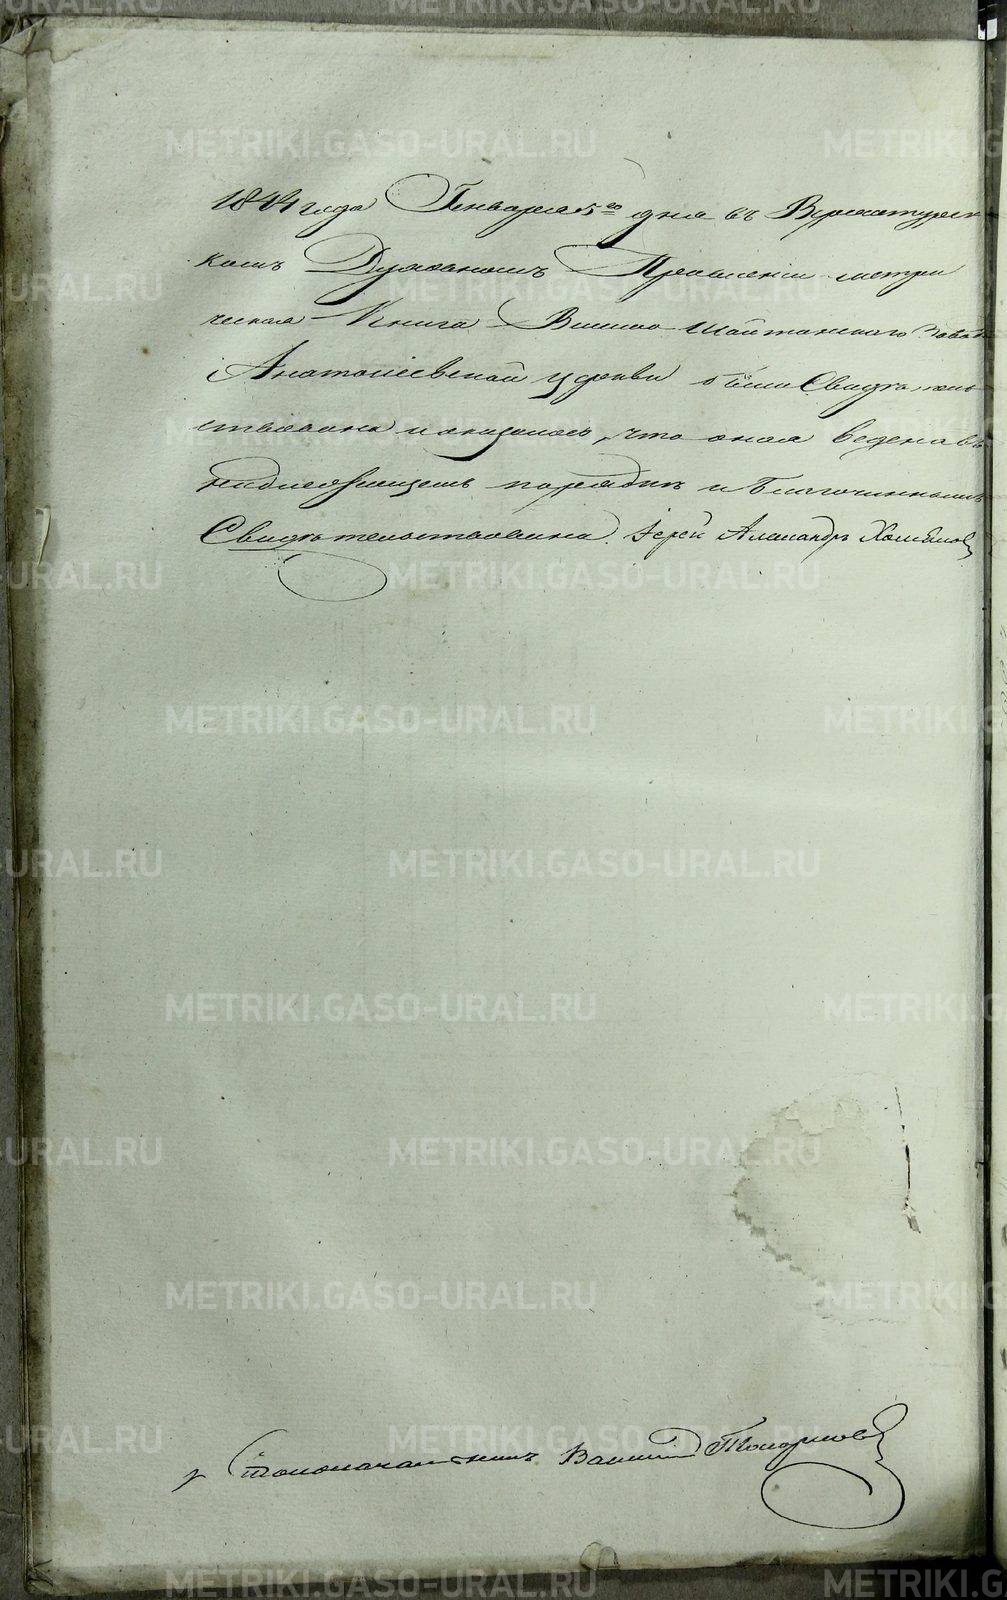 1844 года Генваря 5го дня въ Верхотурс
комъ Духовномъ Правленіи метри
ческая Книга Висимо Шайтанского Завода
Анатоліевской церкви была Свидѣтель
ствована и оказалось, что оная ведена въ
надлежащемъ порядкѣ и благочиннымъ
Свидѣтельствована. Іерей Александръ
Столоначальникъ Василий
METRIKI.GASO-URAL.RU